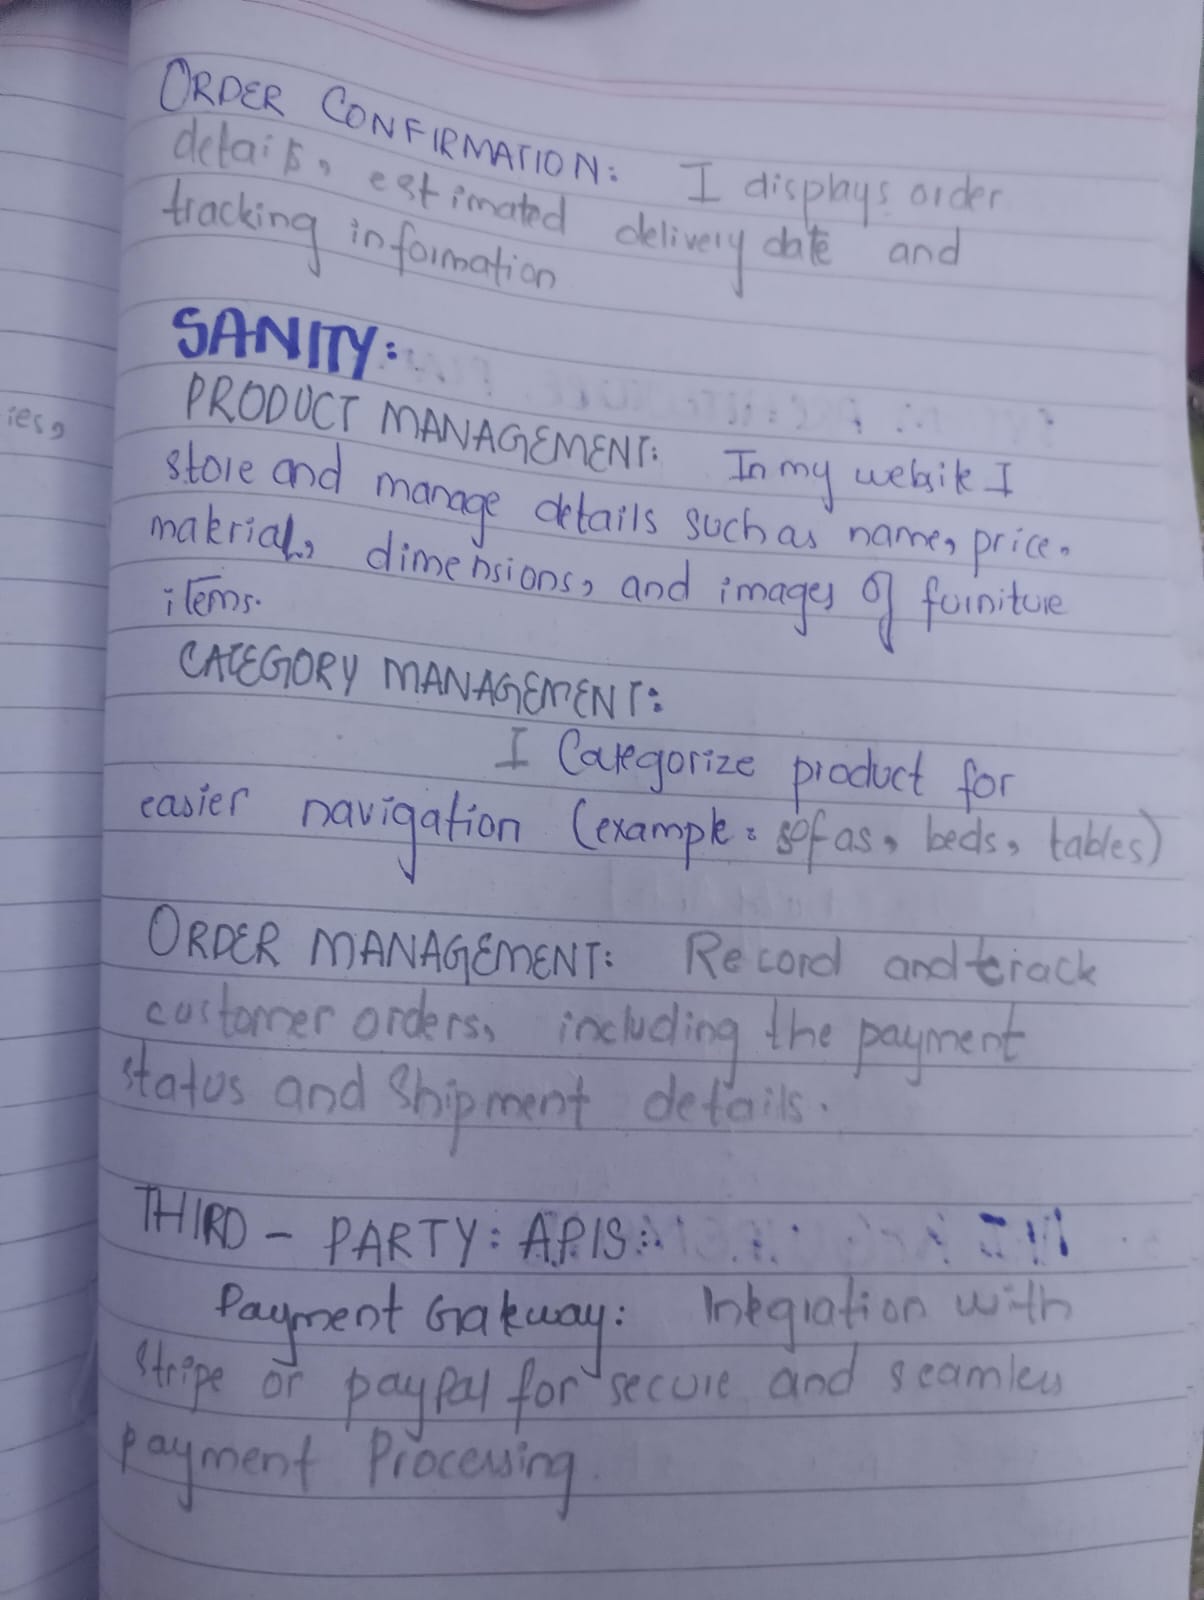 ORDER CONFIRMATION: I displays order
details, estimated delivery date and
tracking information
SANITY:
PRODUCT MANAGEMENT: In my website I
store and manage details such as name, price,
material, dimensions, and images of furniture
items.
CATEGORY MANAGEMENT:
I Categorize product for
easier navigation (example: sofas, beds, tables)
ORDER MANAGEMENT: Record and track
customer orders, including the payment
status and Shipment details.
THIRD - PARTY: APIS:
Payment Gateway: Integration with
Stripe or payPal for secure and seamless
payment Processing
ies,